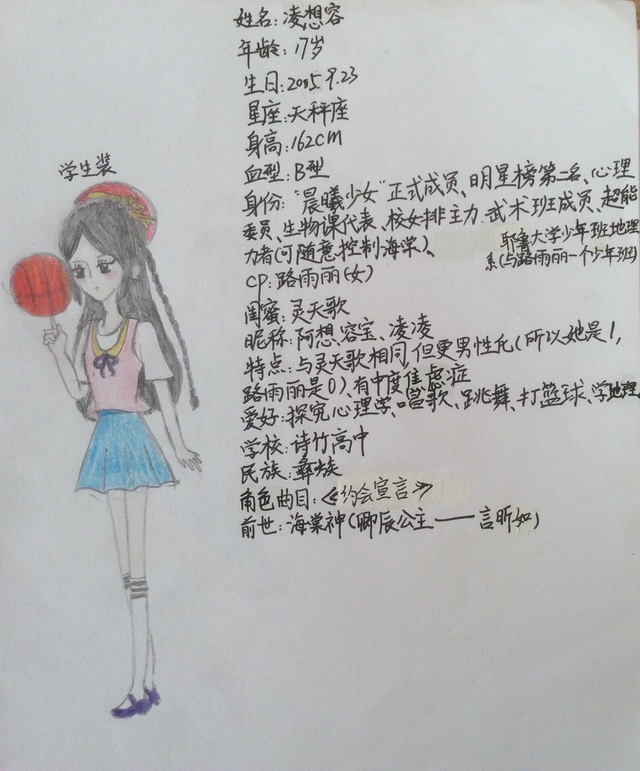 学生装
姓名:凌想容
年龄:17岁
生日:2005.9.23
星座:天秤座
身高:162cm
血型:B型
身份:“晨曦少女”正式成员、明星榜第二名、心理
委员、生物课代表、校女排主力、武术班成员、超能
力者(可随意控制海棠)、
耶鲁大学少年班地理
系(与路雨丽一个少年班)
CP:路雨丽(女)
闺蜜:灵天歌
昵称:阿想、容宝、凌凌
特点:与灵天歌相同,但更男性化(所以她是1,
路雨丽是0)、有中度焦虑症
爱好:探究心理学、唱歌、跳舞、打篮球、学地理、
学校:诗竹高中
民族:彝族
角色曲目:《约会宣言》
前世:海棠神(卿辰公主——言昕如)